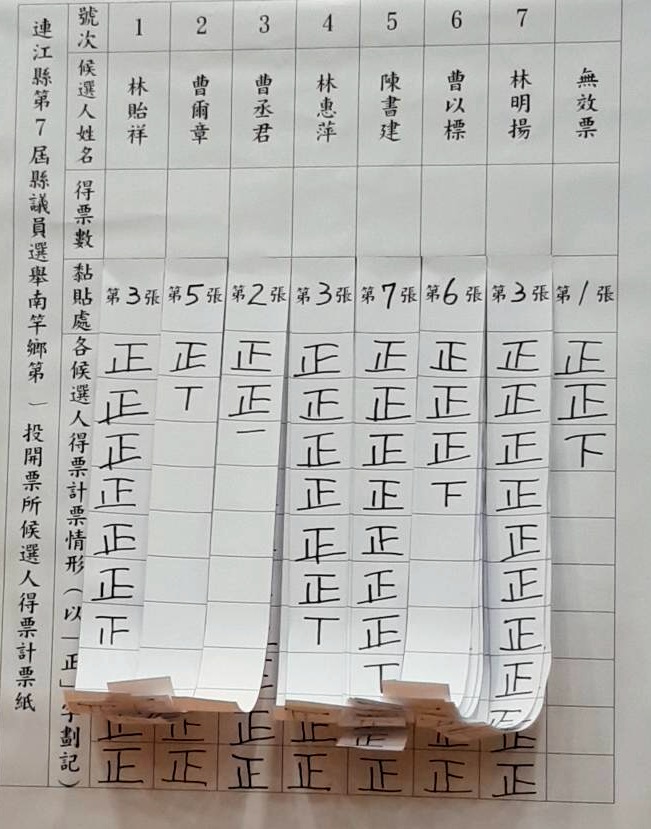 連江縣第7屆縣議員選舉南竿鄉第一投開票所候選人得票計票紙
號次 1 2 3 4 5 6 7
候選人姓名 林貽祥 曹爾章 曹丞君 林惠萍 陳書建 曹以標 林明揚 無效票
得票數
黏貼處各候選人得票計票情形(以「正」字劃記)
第3張 第5張 第2張 第3張 第7張 第6張 第3張 第1張
正 正 正 正 正 正 正 正
正 丅 正 正 正 正 正 正
正 一 正 正 正 正 下
正 正 正 下 正
正 正 正 正
正 正 正 正
正 丅 正 正
丅 正
正 正 正 正 正 正 正
正 正 正 正 正 正 正